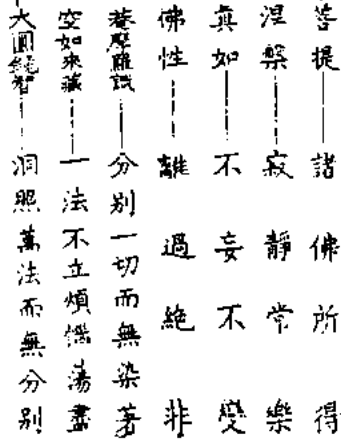 菩提——諸佛所得
涅槃——寂靜常樂
真如——不妄不變
佛性——離過絶非
菴摩羅識——分別一切而無染著
空如來藏——一法不立煩惱蕩盡
大圓鏡智——洞照萬法而無分別